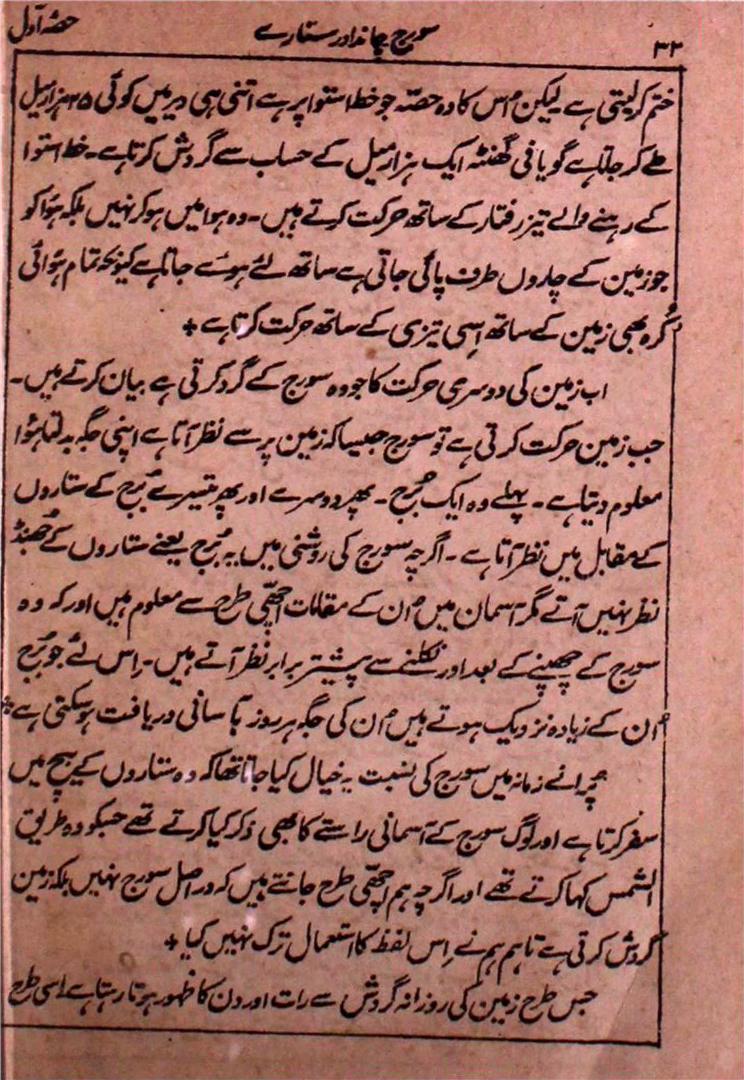 ۳۲ سورج چاند اور ستارے حصہ اوّل
ختم کر لیتی ہے لیکن اُس کا وہ حصّہ جو خط استوا پر ہے اتنی ہی دیر میں کوئی ۲۵ ہزار میل
طے کر جاتا ہے گویا فی گھنٹہ ایک ہزار میل کے حساب سے گردش کرتا ہے۔ خط استوا
کے رہنے والے تیز رفتار کے ساتھ حرکت کرتے ہیں۔ وہ ہوا میں ہو کر نہیں بلکہ ہوا کو
جو زمین کے چاروں طرف پائی جاتی ہے ساتھ لئے ہوئے جاتا ہے کیونکہ تمام ہوائی
کُرہ بھی زمین کے ساتھ اِسی تیزی کے ساتھ حرکت کرتا ہے +
اب زمین کی دوسری حرکت کا جو وہ سورج کے گرد کرتی ہے بیان کرتے ہیں۔
جب زمین حرکت کرتی ہے تو سورج جیسا کہ زمین پر سے نظر آتا ہے اپنی جگہ بدلتا ہوا
معلوم دیتا ہے۔ پہلے وہ ایک بُرج۔ پھر دوسرے اور پھر تیسرے بُرج کے ستاروں
کے مقابل میں نظر آتا ہے۔ اگرچہ سورج کی روشنی میں یہ بُرج یعنے ستاروں کے جُھنڈ
نظر نہیں آتے مگر آسمان میں اُن کے مقامات اچھّی طرح سے معلوم ہیں اور کہ وہ
سورج کے چھپنے کے بعد اور نکلنے سے پیشتر برابر نظر آتے ہیں۔ اِس لئے جو بُرج
اُن کے زیادہ نزدیک ہوتے ہیں اُن کی جگہ ہر روز بآسانی دریافت ہو سکتی ہے +
پُرانے زمانہ میں سورج کی نسبت یہ خیال کیا جاتا تھا کہ وہ ستاروں کے بیچ میں
سفر کرتا ہے اور لوگ سورج کے آسمانی راستے کا بھی ذکر کیا کرتے تھے جسکو وہ طریق
الشمس کہا کرتے تھے اور اگرچہ ہم اچھّی طرح جانتے ہیں کہ دراصل سورج نہیں بلکہ زمین
گردش کرتی ہے تاہم ہم نے اِس لفظ کا استعمال ترک نہیں کیا +
جس طرح زمین کی روزانہ گردش سے رات اور دن کا ظہور ہوتا رہتا ہے اسی طرح